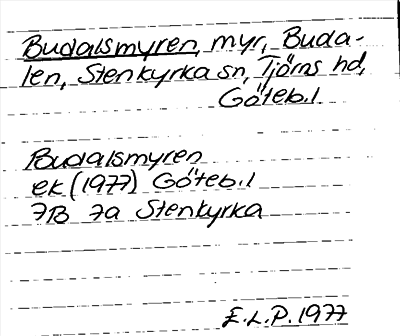 Budalsmyren, myr, Buda-
len, Stenkyrka sn, Tjörns hd,
Göteb. l.
Budalsmyren
ek (1977) Göteb. l
7B 7a Stenkyrka
E.L.P. 1977